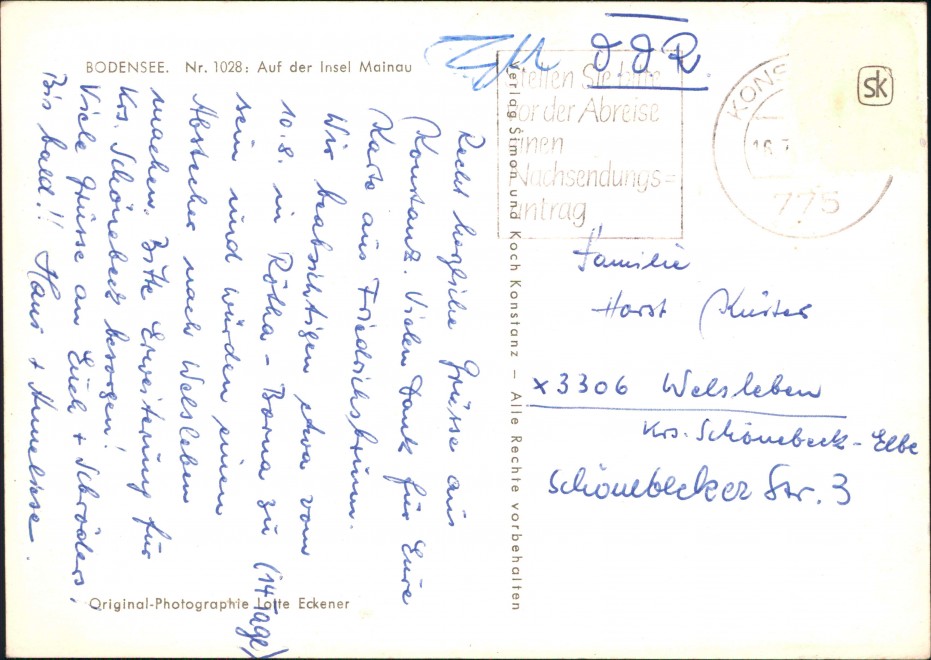 BODENSEE. Nr. 1028: Auf der Insel Mainau
Recht herzliche Grüsse aus
Konstanz. Vielen Dank für Eure
Karte aus Friedrichsbrunn.
Wir beabsichtigen etwa vom
10.8. in Rötha-Borna zu (14 Tage)
sein und würden einen
Abstecher nach Welsleben
machen. Bitte Erweiterung für
Krs. Schönebeck besorgen!
Viele Grüsse an Euch + Schröders.
Bis bald!! Hans + Anneliese.
Original-Photographie Lotte Eckener
Verlag Simon und Koch Konstanz – Alle Rechte vorbehalten
DDR
Stellen Sie bitte
vor der Abreise
einen
Nachsendungs=
antrag
KONS
775
sk
Familie
Horst Küster
x3306 Welsleben
Krs. Schönebeck-Elbe
Schönebecker Str. 3